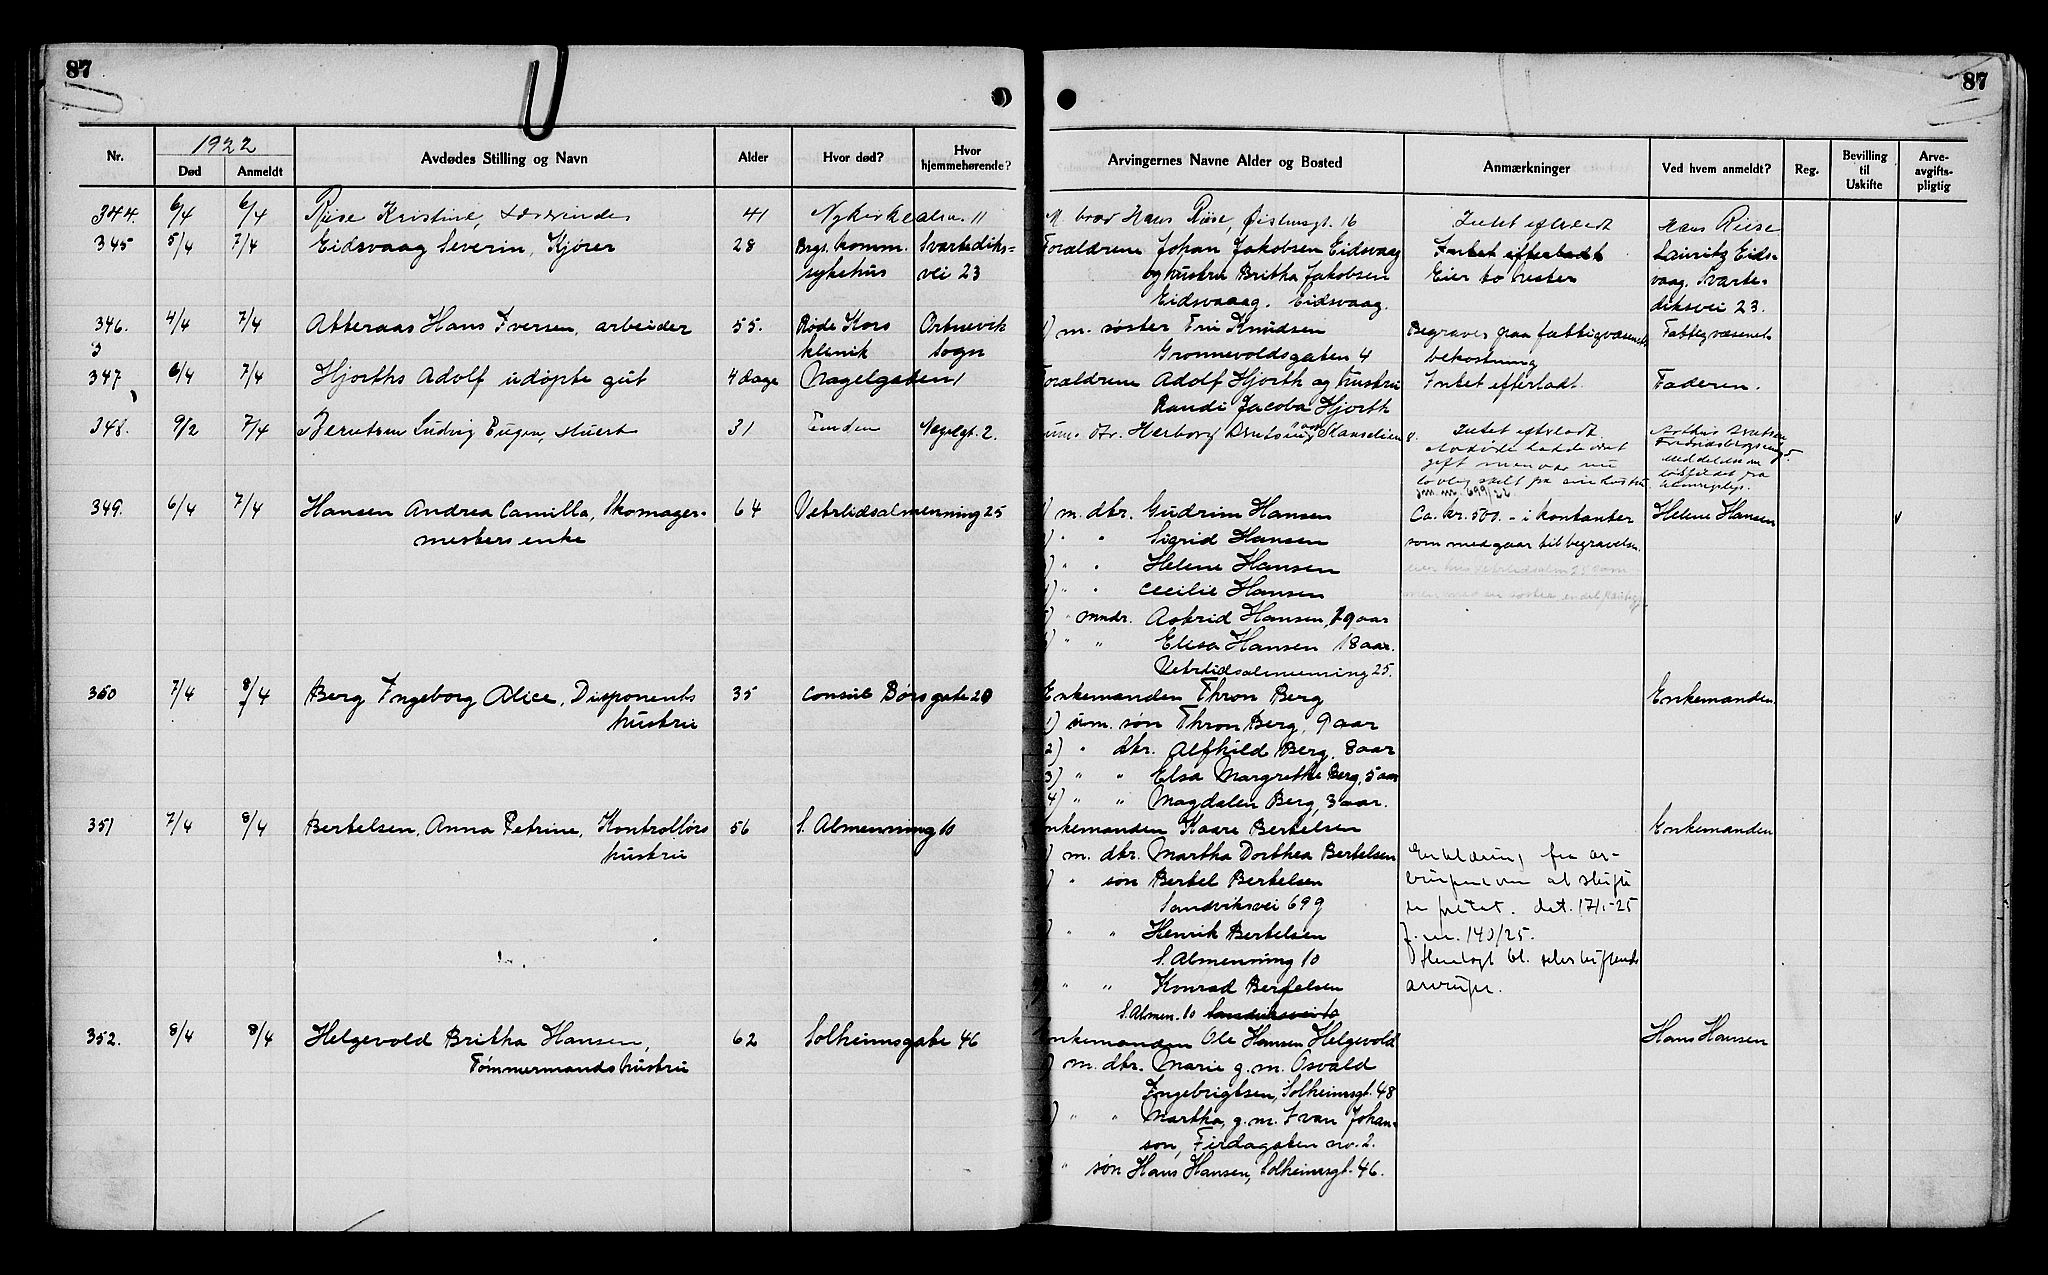 87
87
1922
Nr.
Død
Anmeldt
Avdødes Stilling og Navn
Alder
Hvor død?
Hvor hjemmehørende?
Arvingernes Navne Alder og Bosted
Anmærkninger
Ved hvem anmeldt?
Reg.
Bevilling til Uskifte
Arve-avgifts-pligtig
344. 6/4 6/4 Riise Kristine, Lærerinde 41 Nykirkealm. 11 M. bror Hans Riise, Øisteinsgt. 16 Intet efterladt Hans Riise
345 5/4 7/4 Eidsvaag Severin, Kjører 28 Brgs. komm. Svartediks- Forældrene Johan Jakobsen Eidsvaag Intet efterladt Lauritz Eids-
sykehus vei 23 og hustru Britha Jakobsen Eier to hester vaag. Svarte-
Eidsvaaag. Eidsvaag. diksvei 23.
346. 4/4 7/4 Atteraas Hans Iversen, arbeider 55. Røde Kors Ortnevik 1) m. søster Fru Knudsen Begraves paa fattigvæsenets Fattigvæsenet.
3 klinik Sogn Grønnevoldsgaten 4 bekostning
347 6/4 7/4 Hjorths Adolf udøpte gut 4 dage Nagelgaten 1 Forældrene Adolf Hjorth og hustru Intet efterladt. Faderen.
Randi Jacoba Hjorth
348. 9/2 7/4 Berntsen Ludvig Eugen, stuert 31 Emden Nagelgt. 2. um. dtr. Herborg Intet efterladt
gift men var nu
J.nr. 699/22
349. 6/4 7/4 Hansen Andrea Camilla, Skomager- 64 Vetrlidsalmenning 25 1) m. dtr. Gudrun Hansen Ca. kr. 500.- i kontanter Helene Hansen
mesters enke " " Sigrid Hansen som medgaar til begravelsen.
" " Helene Hansen
" " Cecilie Hansen
" mndr. Astrid Hansen, 19 aar
" " Elisa Hansen 18 aar.
Vetrlidsalmenning 25.
350 7/4 8/4 Berg Ingeborg Alice, Disponents 35 Consul Børs gate 20 Enkemanden Thron Berg Enkemanden.
hustru 1) um. søn Thron Berg, 9 aar
2) " dtr. Alfhild Berg, 8 aar
3) " " Elsa Margrethe Berg, 5 aar
4) " " Magdalen Berg, 3 aar.
351 7/4 8/4 Bertelsen, Anna Petrine, Kontrollørs 56 S. Almenning 10 Enkemanden Kaare Bertelsen Enkemanden
hustru ) m. dtr. Martha Dorthea Bertelsen Erklæring fra ar-
) " søn Bertel Bertelsen vingerne om at skifte
Sandviksvei 69 g
) " " Henrik Bertelsen J.nr. 140/25.
S. Almenning 10
" " Konrad Bertelsen
S. Almen. 10 Sandviksvei 10
352. 8/4 8/4 Helgevold Britha Hansen, 62 Solheimsgate 46 Enkemanden Ole Hansen Helgevold Hans Hansen
Tømmermands hustru ) m. dtr. Marie g. m. Osvald
Ingebrigtsen, Solheimsgt. 48
) " " Martha, g. m. Ivan Johan-
son, Firdagaten no. 2.
" søn Hans Hansen, Solheimsgt. 46.